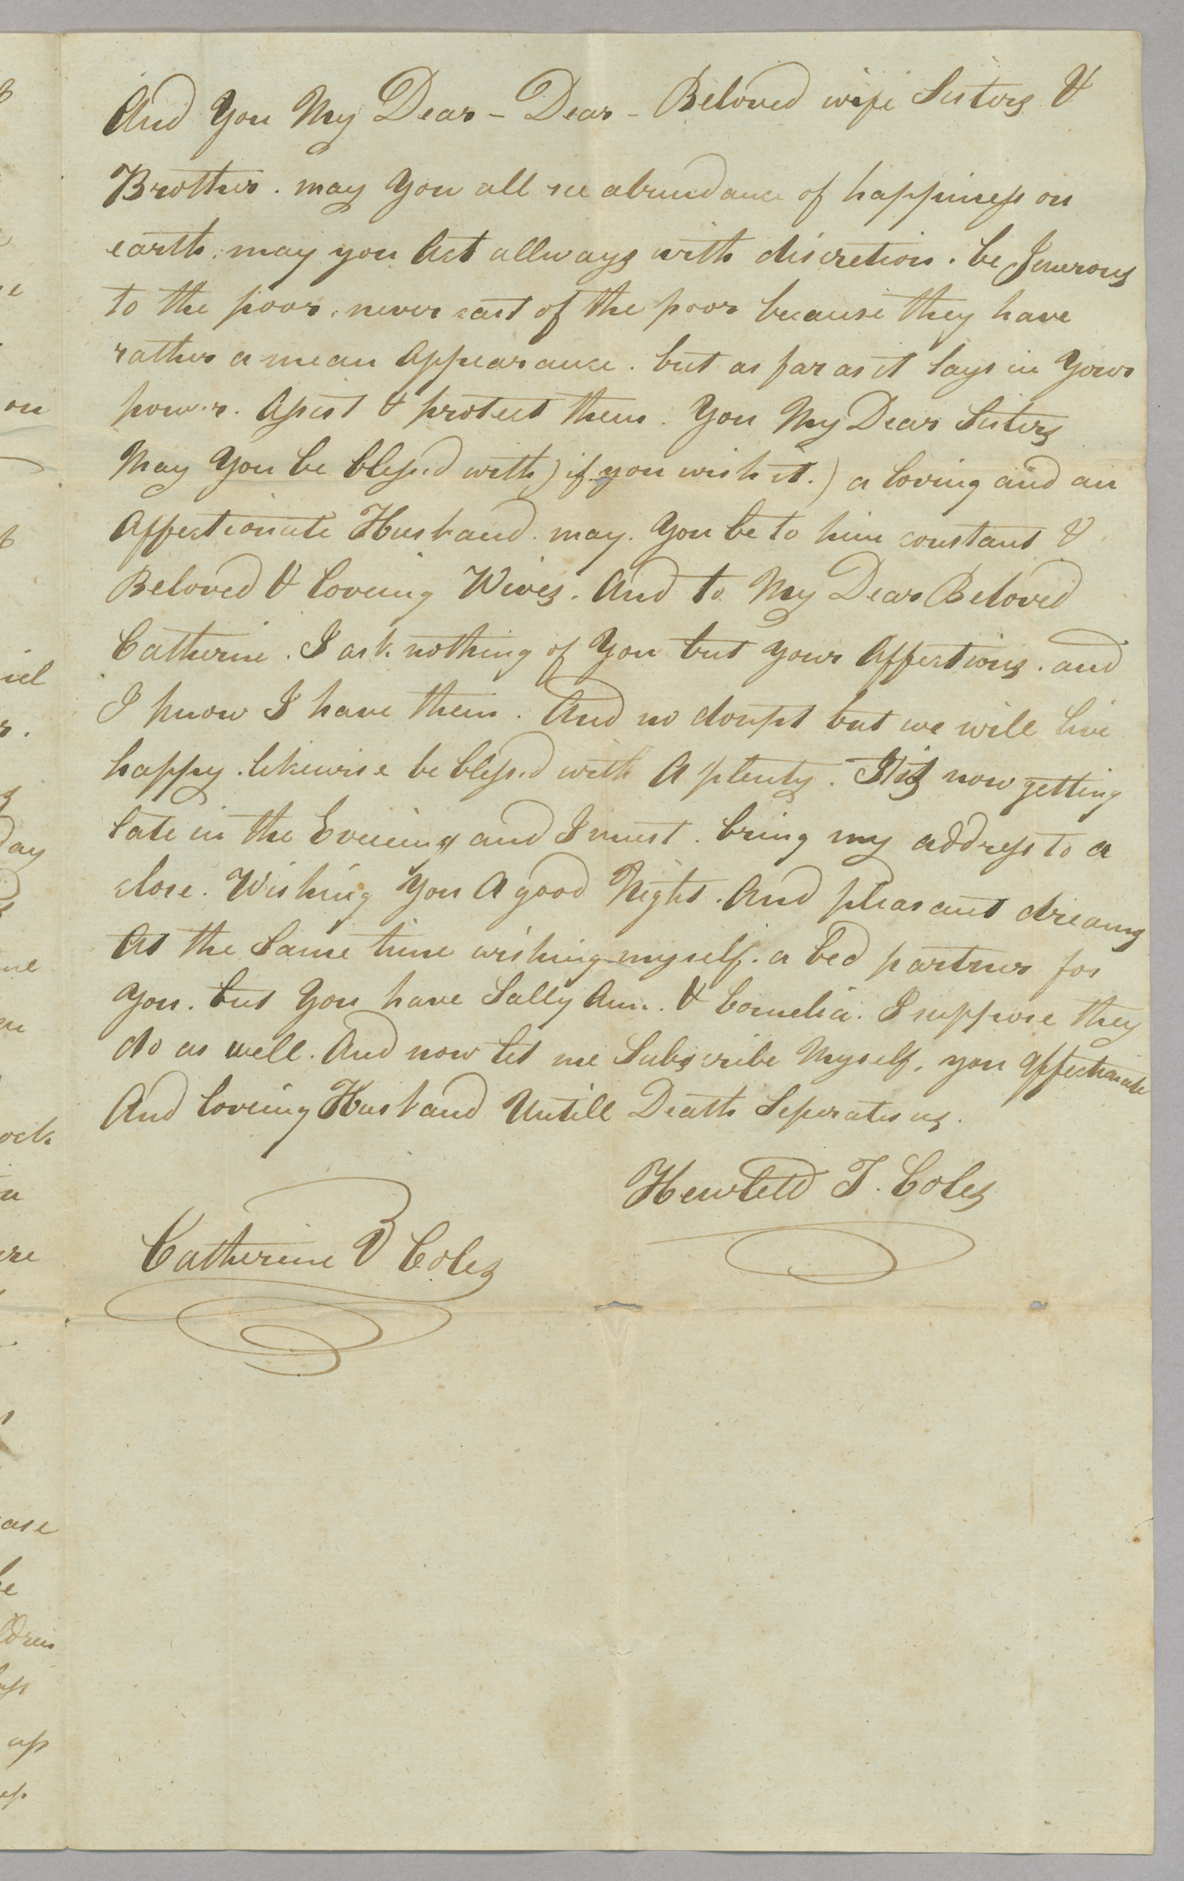 And You My Dear - Dear - Beloved wife Sisters &
Brothers. may You all see abundance of happiness on
earth. may you Act allways with discretion. be Jenerous
to the poor. never cast of the poor because they have
rather a mean Appearance. but as far as it lays in Yours
power. Assist & protect them. You My Dear Sisters
May You be blessed with) if you wish it.) a loving and an
Affectionate Husband. may. You be to him constant &
Beloved & loveing Wives. And to My Dear Beloved
Catherine. I ask nothing of You but your Affections. and
I know I have them. And no doupt but we will live
happy. likewise be blessed with A plenty. It is now getting
late in the Evening and I must. bring my address to a
close. Wishing You A good Night. And pleasant dreams
At the Same time wishing myself. a bed partner for
You. but You have Sally Ann. & Cornelia. I suppose they
do as well. And now let me Subscribe Myself, you Affectionate
And loveing Husband Untill Death Seperates us.
Hewlett T. Coles
Catherine V Coles
on
day
ock
ere
ase